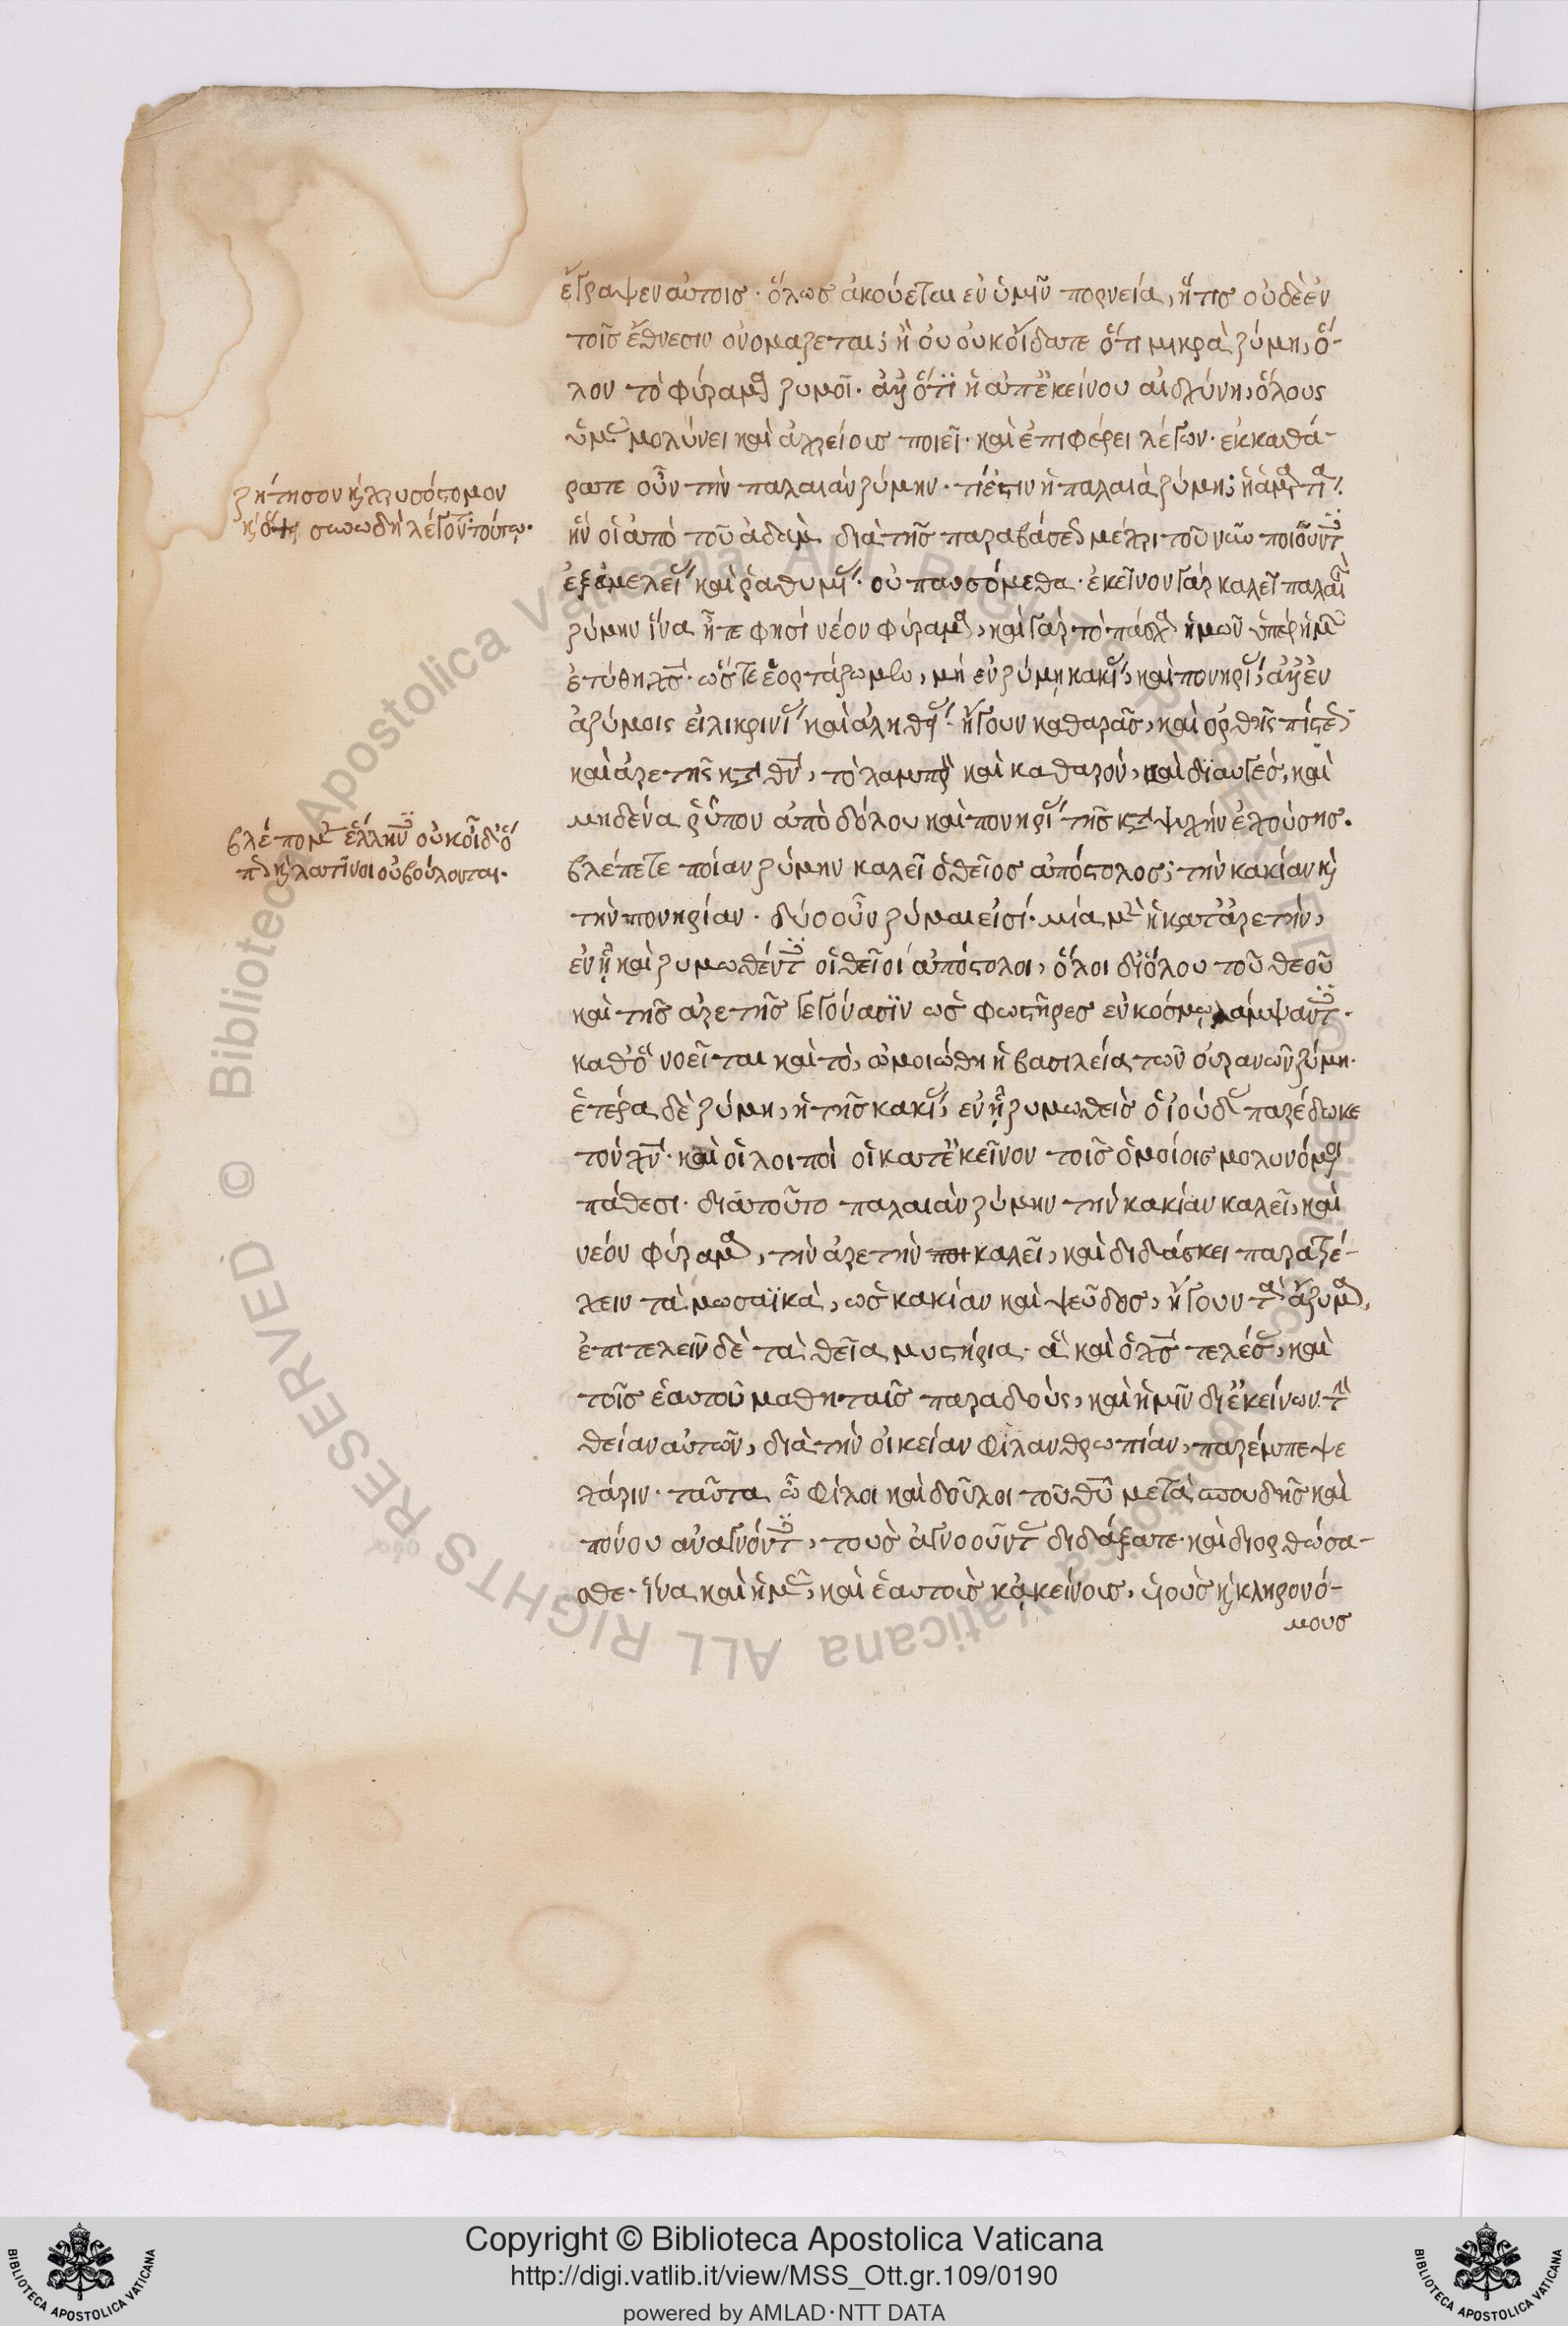 ἔγραψεν αὐτοῖς· ὅλως ἀκούεται ἐν ὑμῖν πορνεία, ἥτις οὐδὲ ἐν
τοῖς ἔθνεσιν ὀνομάζεται; ἢ οὐ οὐκ οἴδατε ὅτι μικρὰ ζύμη, ὅ-
λον τὸ φύραμα ζυμοῖ· ἀλλ' ὅτι ἡ ἀπ' ἐκείνου αἰσχύνη, ὅλους
ὑμᾶς μολύνει καὶ ἀχρείους ποιεῖ· καὶ ἐπιφέρει λέγων· ἐκκαθά-
ρατε οὖν τὴν παλαιὰν ζύμην· τί ἐστιν ἡ παλαιὰ ζύμη; ἡ ἁμαρτία·
ἣν οἱ ἀπὸ τοῦ ἀδὰμ διὰ τῆς παραβάσεως μέχρι τοῦ νῦν ποιοῦντες
ἐξ ἀμελείας καὶ ῥαθυμίας οὐ παυσόμεθα· ἐκεῖνον γὰρ καλεῖ παλαιὰν
ζύμην ἵνα ἦτε φησὶ νέον φύραμα, καὶ γὰρ τὸ πάσχα ἡμῶν ὑπὲρ ἡμῶν
ἐτύθη χς· ὥστε ἑορτάζωμεν, μὴ ἐν ζύμῃ κακίας, καὶ πονηρίας, ἀλλ' ἐν
ἀζύμοις εἰλικρινίας καὶ ἀληθείας· ἤγουν καθαρᾶς, καὶ ὀρθῆς πίστεως
καὶ ἀρετῆς κατὰ θν, τὸ λαμπρὸν καὶ καθαρόν, καὶ διαυγές, καὶ
μηδένα ῥύπον ἀπὸ δόλου καὶ πονηρίας τῆς κατὰ ψυχὴν ἐχούσης.
βλέπετε ποίαν ζύμην καλεῖ ὁ θεῖος ἀπόστολος; τὴν κακίαν καὶ
τὴν πονηρίαν· δύο οὖν ζύμαι εἰσί· μία μὲν ἡ κατ' ἀρετήν,
ἐν ᾗ καὶ ζυμωθέντες οἱ θεῖοι ἀπόστολοι, ὅλοι δι' ὅλου τοῦ θεοῦ
καὶ τῆς ἀρετῆς γεγόνασιν ὡς φωστῆρες ἐν κόσμῳ λάμψαντες·
καθ' ὃ νοεῖται καὶ τὸ, ὡμοιώθη ἡ βασιλεία τῶν οὐρανῶν ζύμη·
ἑτέρα δὲ ζύμη, ἡ τῆς κακίας, ἐν ᾗ ζυμωθεὶς ὁ ἰούδας παρέδωκε
τὸν χν· καὶ οἱ λοιποὶ οἱ κατ' ἐκεῖνον τοῖς ὁμοίοις μολυνόμενοι
πάθεσι· διὰ τοῦτο παλαιὰν ζύμην τὴν κακίαν καλεῖ, καὶ
νέον φύραμα, τὴν ἀρετὴν καλεῖ, καὶ διδάσκει παρατρέ-
χειν τὰ μωσαϊκὰ, ὡς κακίαν καὶ ψεῦδος, ἤγουν τὰ ἄζυμα,
ἐπιτελεῖν δὲ τὰ θεῖα μυστήρια· ἃ καὶ ὁ χς τελέσας, καὶ
τοῖς ἑαυτοῦ μαθηταῖς παραδοὺς, καὶ ἡμῖν δι' ἐκείνων τὴν
θείαν αὐτῶν, διὰ τὴν οἰκείαν φιλανθρωπίαν, παρέμπεψε
χάριν· ταῦτα ὦ φίλοι καὶ δοῦλοι τοῦ θῦ μετὰ σπουδῆς καὶ
πόνου ἀναγνόντες, τοὺς ἀγνοοῦντας διδάξατε· καὶ διορθώσα-
σθε· ἵνα καὶ ἡμᾶς, καὶ ἑαυτοὺς κἀκείνους, υἱοὺς καὶ κληρονό-
μους
ζήτησον καὶ χρυσόστομον
λέγοντα τούτῳ.
βλέπομεν ἕλληνες οὐκ οἶδ' ὅ
καὶ λατῖνοι οὐ βούλονται.
Biblioteca Apostolica Vaticana ALL RIGHTS RESERVED ©
BIBLIOTECA APOSTOLICA VATICANA
Copyright © Biblioteca Apostolica Vaticana
http://digi.vatlib.it/view/MSS_Ott.gr.109/0190
powered by AMLAD·NTT DATA
BIBLIOTECA APOSTOLICA VATICANA